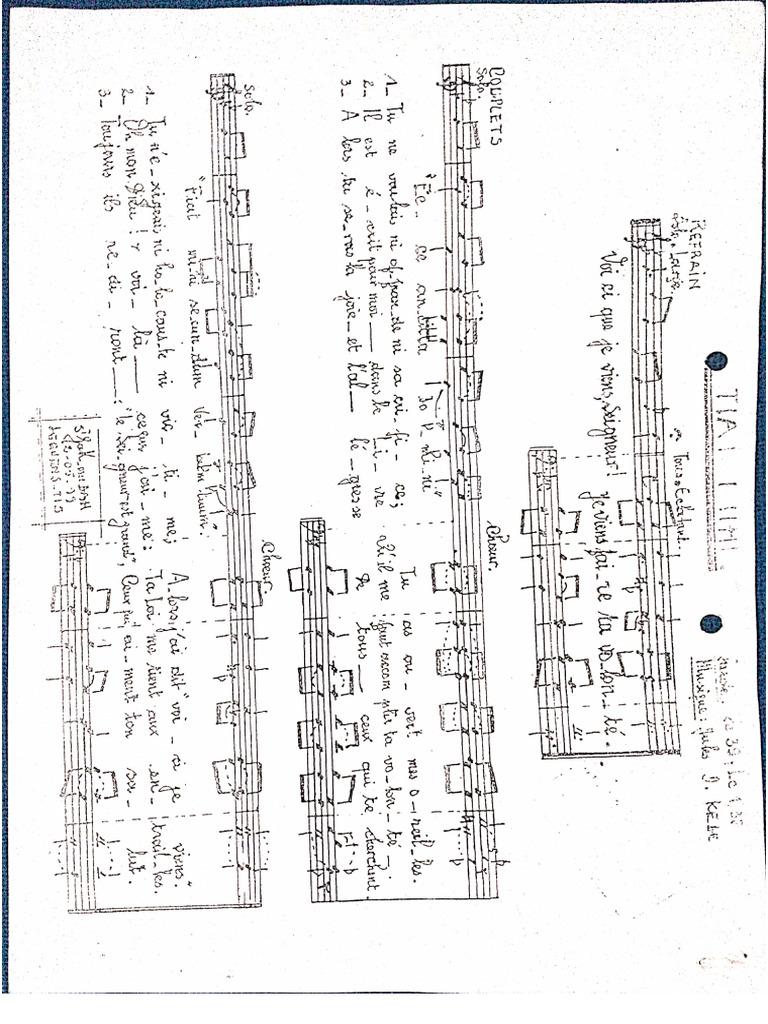 FIAT MIHI.
Ps 39; Lc 1,38
Musique: Jules D. KEBE
REFRAIN
Tous. Eclatant.
Voi ci que je viens, Seigneur! Je viens fai_re ta vo_lon_té.
COUPLETS
Solo.
Chœur.
"Ec_ce an_cilla Do_mi_ni"
1_ Tu ne voulais ni of_fran_de ni sa_cri_fi_ce; Tu as ou_vert mes o_reil_les.
2_ Il est é_crit pour moi___ dans le li_vre Qu'il me faut accom_plir ta vo_lon_té_;
3_ A lors, tu se_ras la joie_et l'al___lé_gresse de tous___ ceux qui te cherchent.
Solo.
Chœur.
"Fiat mi_hi se_cun_dum Ver_bum tuum".
1_ Tu n'e_xigeais ni ho_lo_caus_te ni vic_ti_me; A_lors, j'ai dit "voi_ci je viens."
2_ Oh mon Dieu! voi_là___ ce que j'ai_me: Ta loi me tient aux en_trail_les.
3_ Toujours ils re_di_ront___: "le Seigneur est grand", Ceux qui ai_ment ton sa_lut.